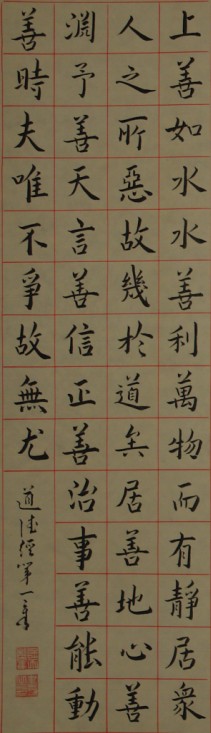 上善如水水善利萬物而有靜居衆
人之所惡故幾於道矣居善地心善
淵予善天言善信正善治事善能動
善時夫唯不爭故無尤
道德經第一章